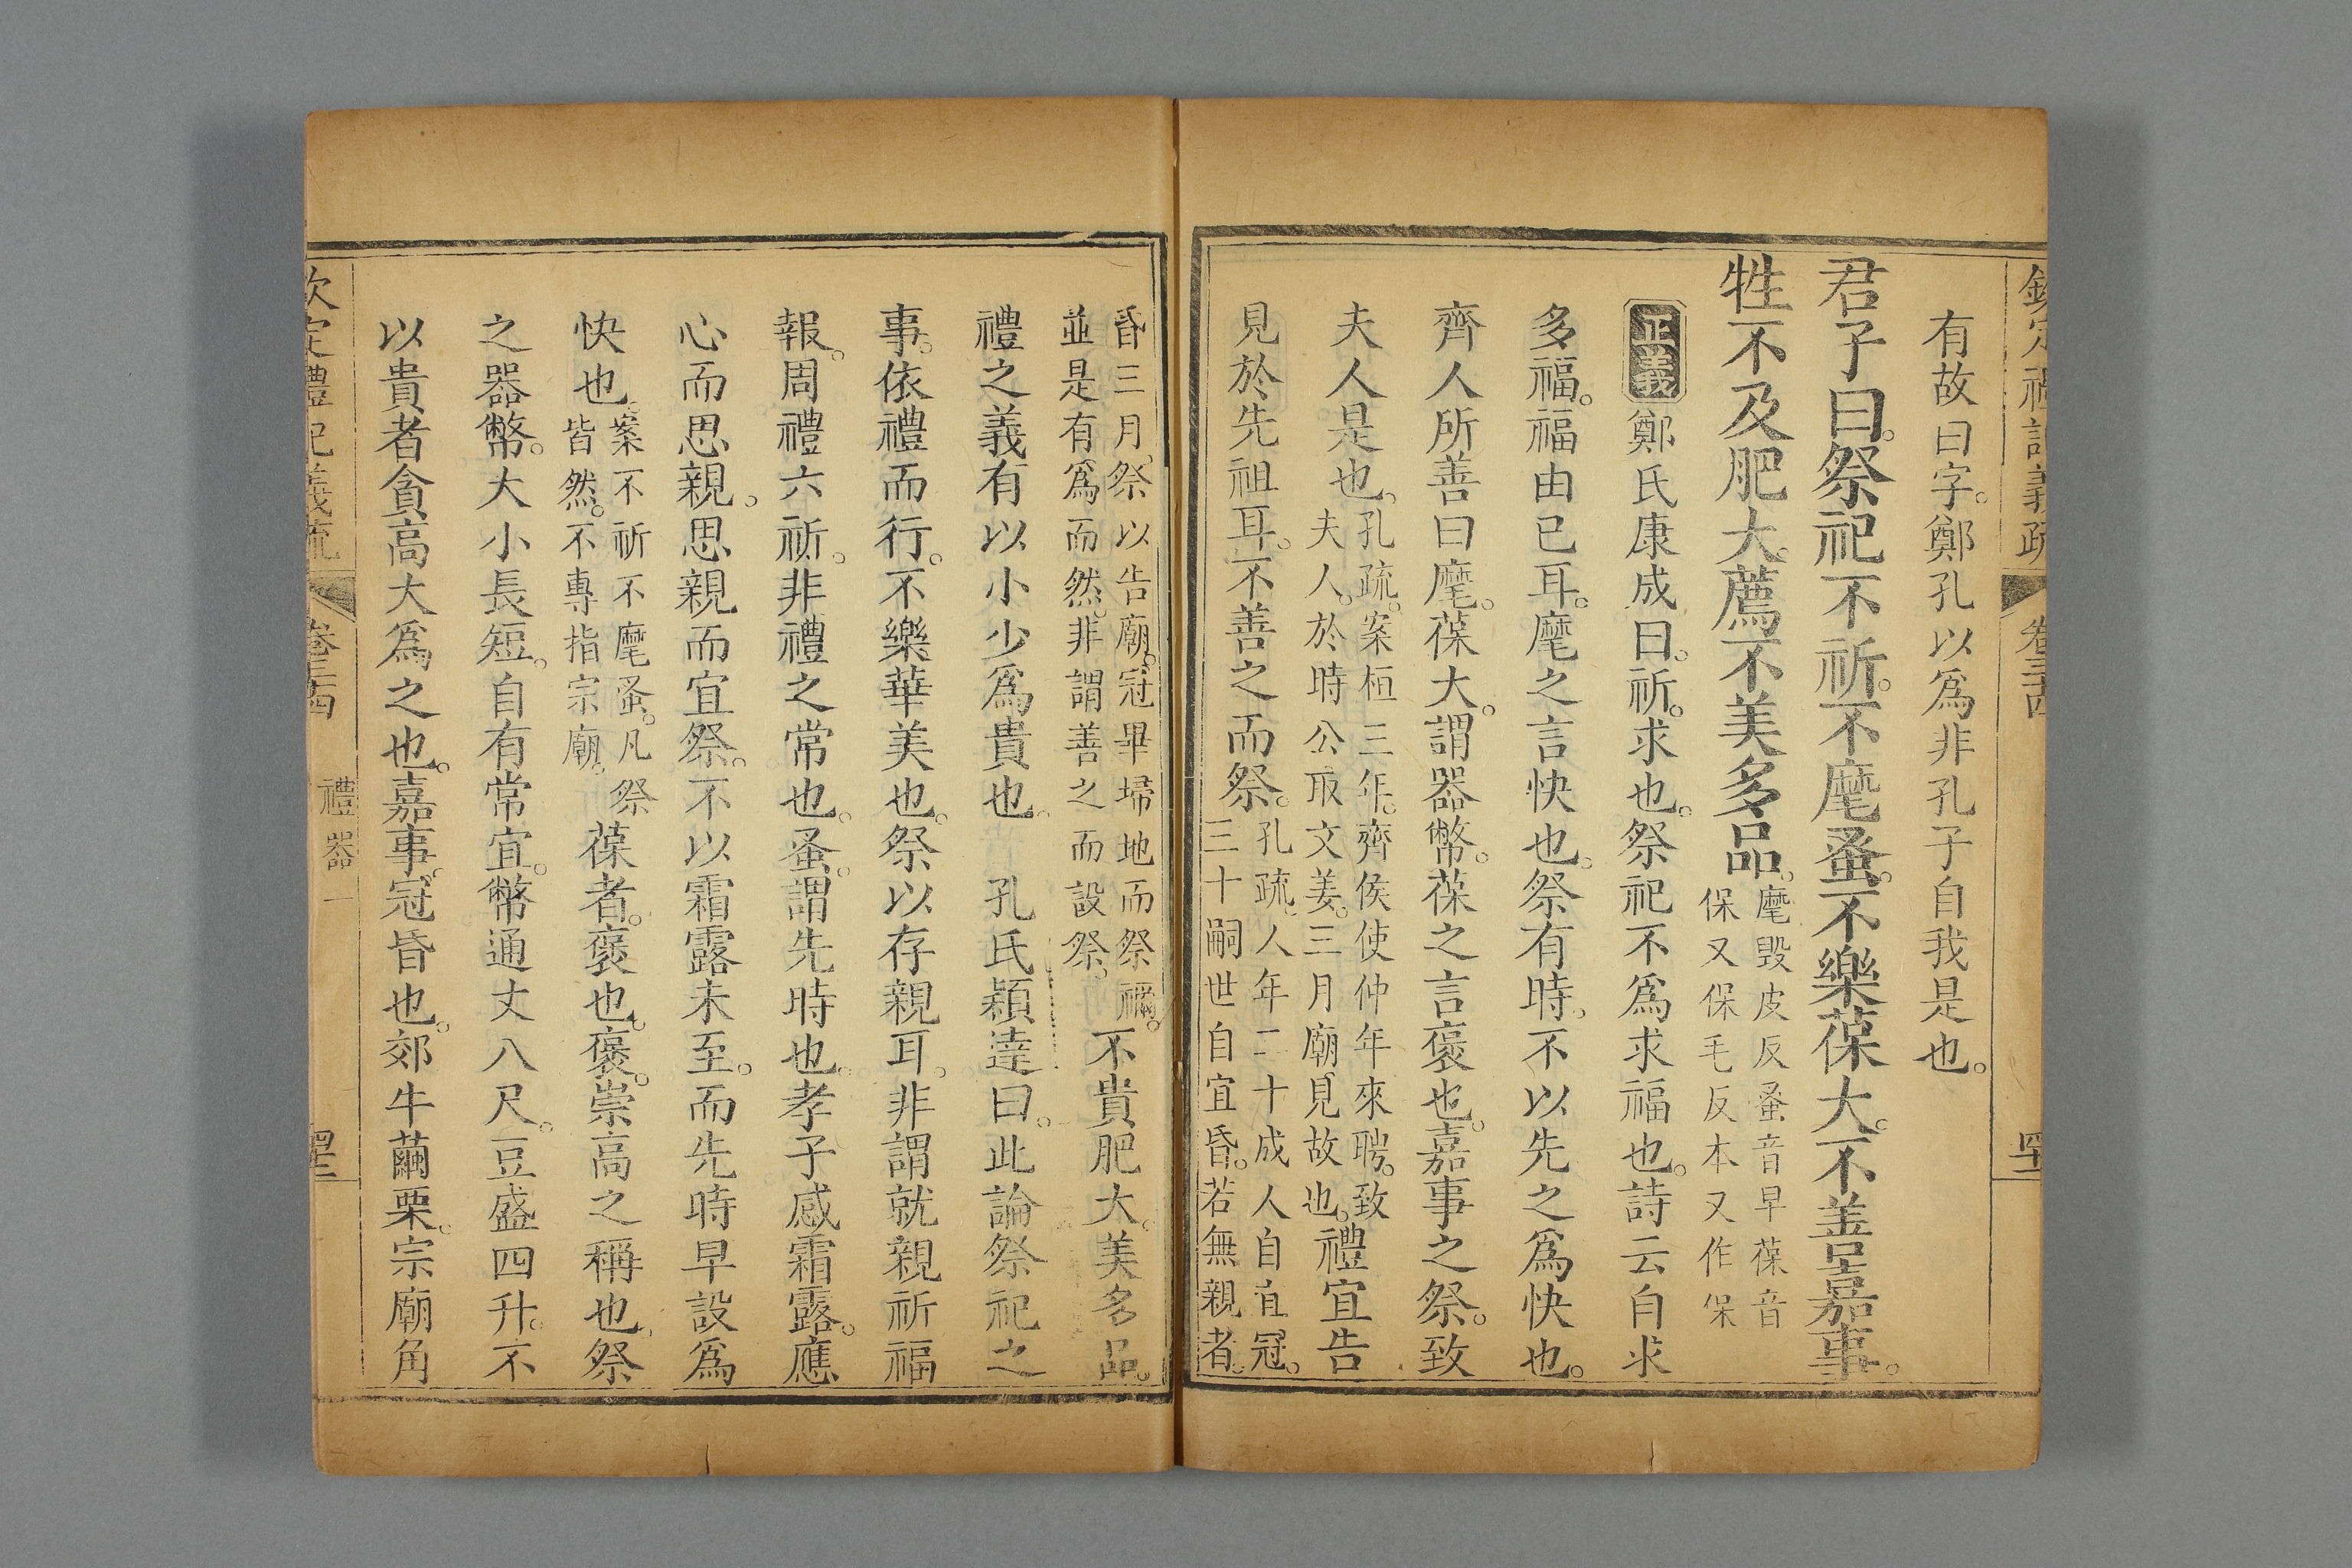 欽定禮記義疏 卷三十四
有故曰字。鄭孔以爲非孔子自我是也。
君子曰。祭祀不祈。不麾蚤。不樂葆大。不善嘉事。
牲不及肥大。薦不美多品。麾毀皮反蚤音早葆音
保又保毛反本又作保
正義 鄭氏康成曰。祈。求也。祭祀不爲求福也。詩云自求
多福。福由已耳。麾之言快也。祭有時。不以先之爲快也。
齊人所善曰麾。葆大。謂器幣。葆之言褒也。嘉事之祭。致
夫人是也。孔疏。案桓三年。齊侯使仲年來聘。致
夫人。於時公取文姜。三月廟見故也。禮宜告
見於先祖耳。不善之而祭。孔疏。人年二十成人自宜冠。
三十嗣世自宜昏。若無親者。
昏三月。祭以告廟。冠畢埽地而祭禰。
並是有爲而然。非謂善之而設祭。不貴肥大。美多品。
禮之義有以小少爲貴也 孔氏穎達曰。此論祭祀之
事。依禮而行。不樂華美也。祭以存親耳。非謂就親祈福
報。周禮六祈。非禮之常也。蚤。謂先時也。孝子感霜露。應
心而思親。思親而宜祭。不以霜露未至。而先時早設爲
快也。案不祈不麾蚤。凡祭
皆然。不專指宗廟。葆者。褒也。褒。崇高之稱也。祭
之器幣。大小長短。自有常宜。幣通丈八尺。豆盛四升。不
以貴者貪高大爲之也。嘉事。冠昏也。郊牛繭栗。宗廟角
欽定禮記義疏 卷三十四 禮器一